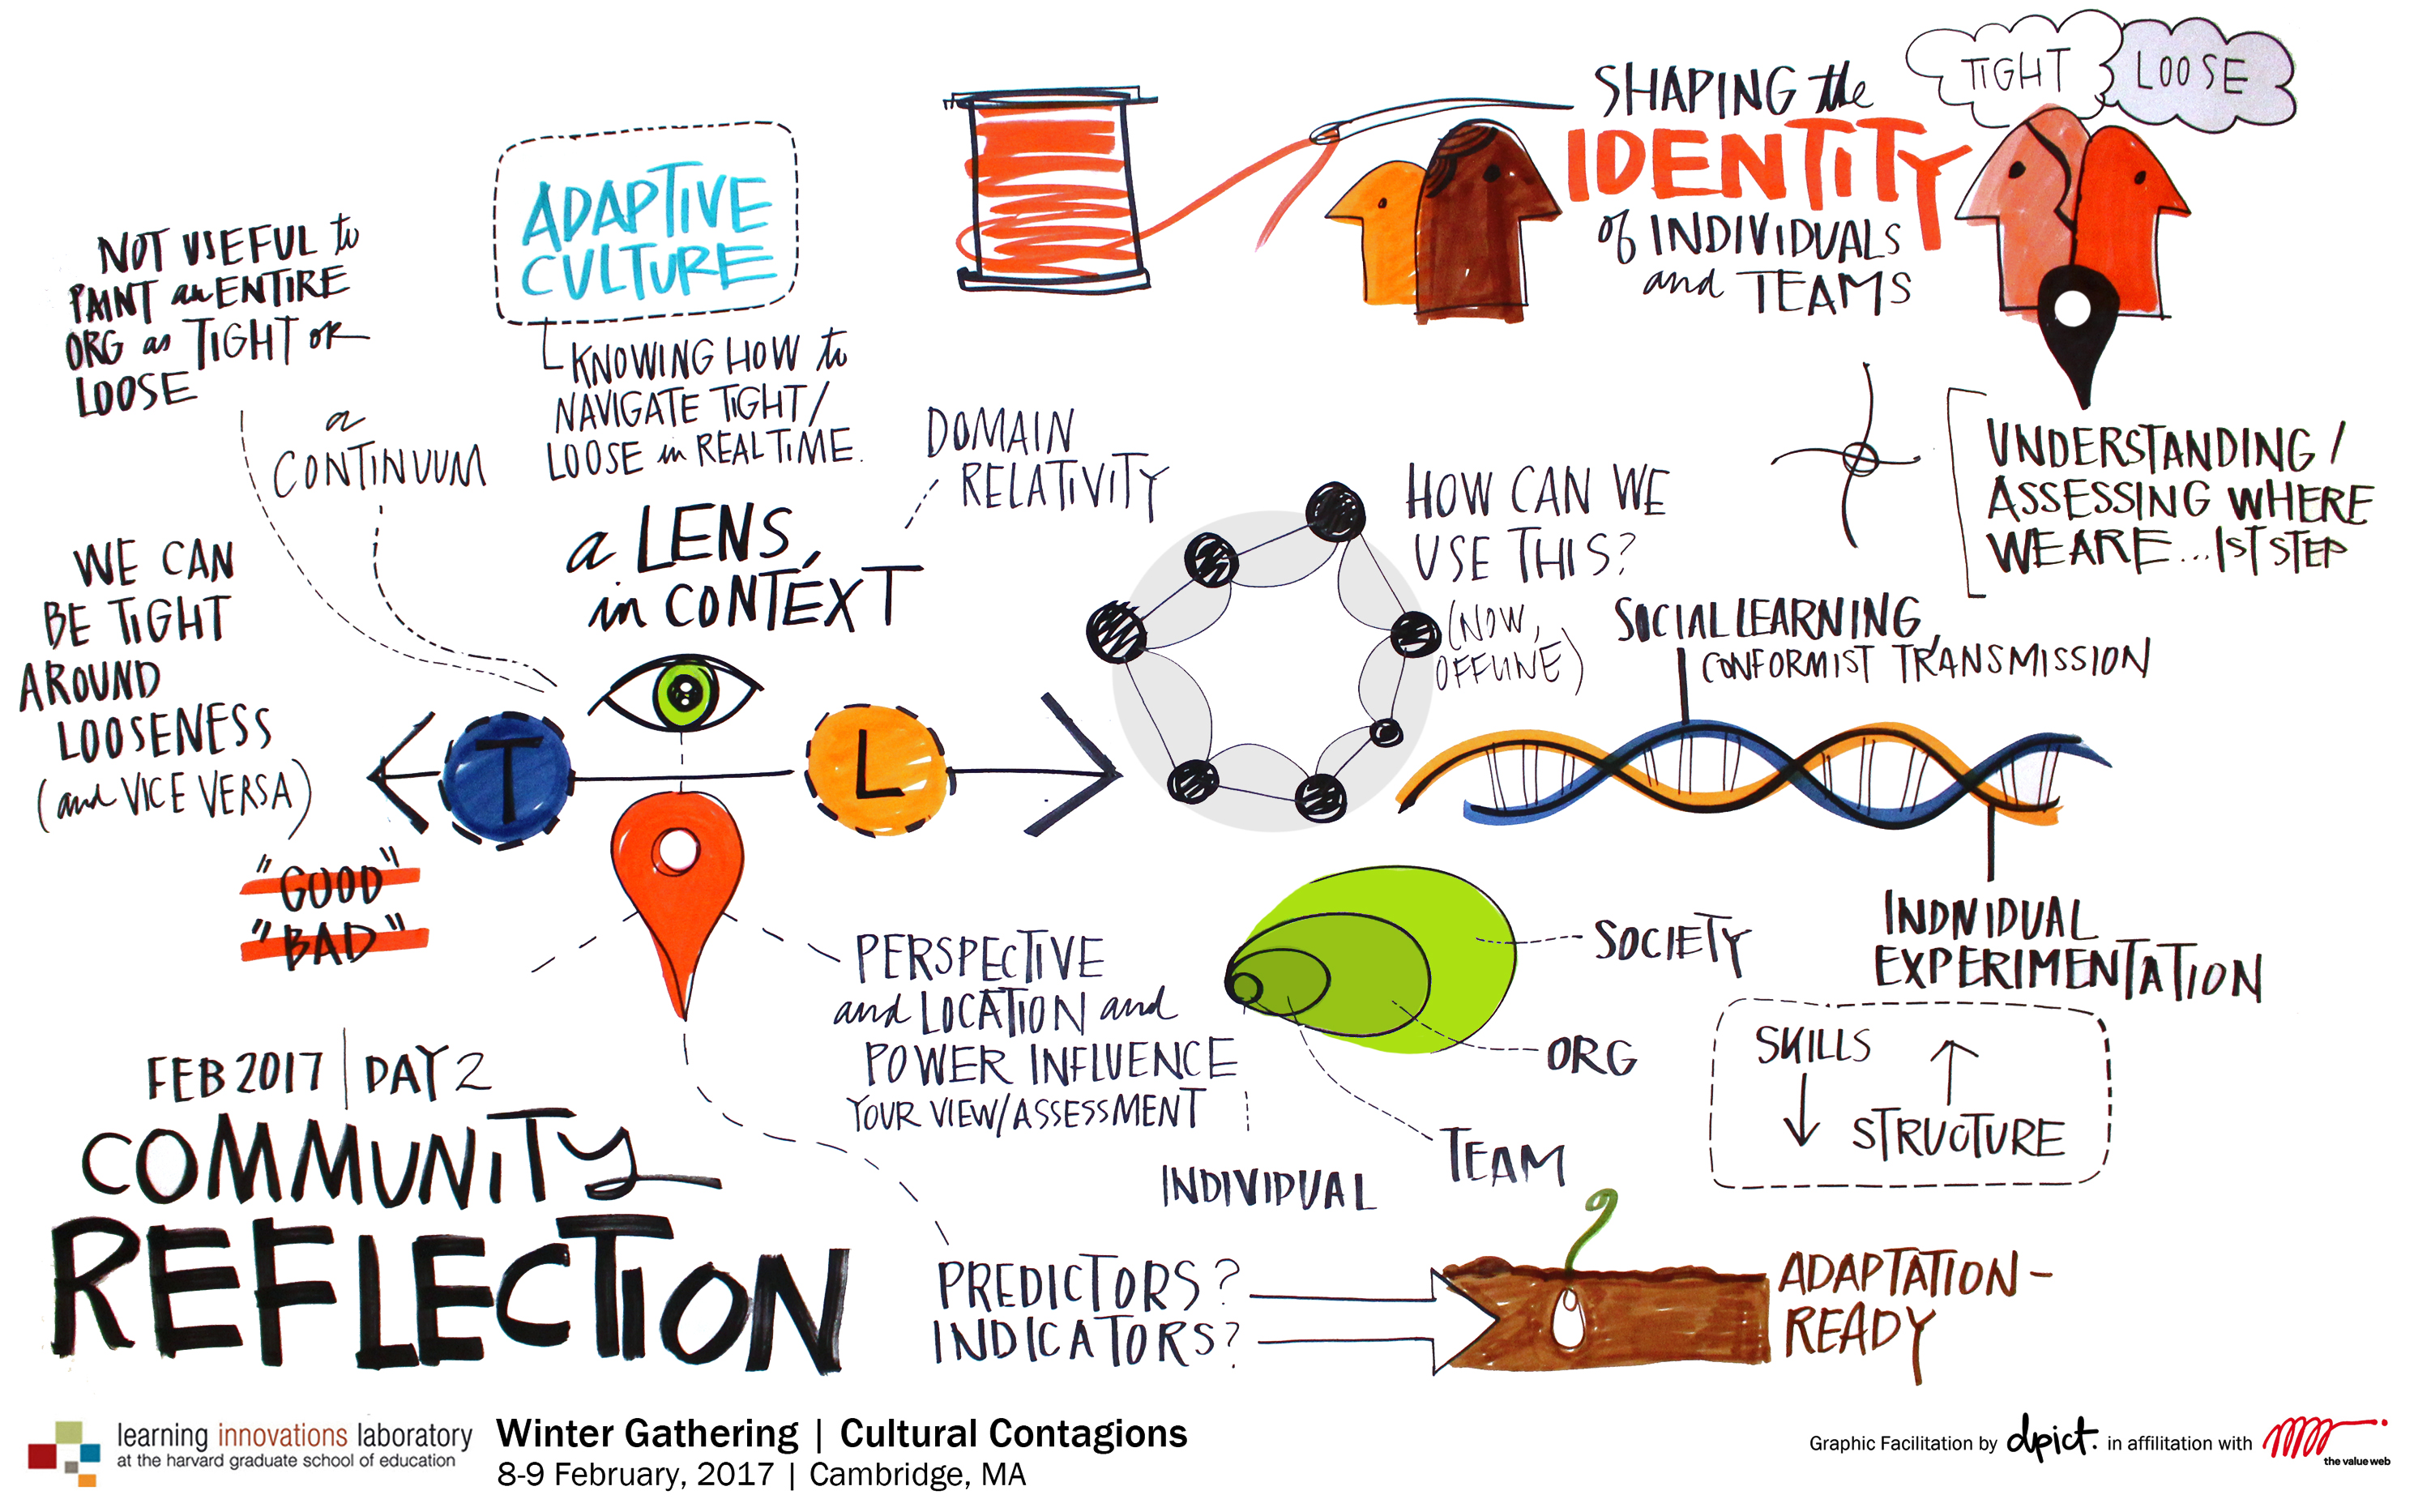 NOT USEFUL to
PAINT an ENTIRE
ORG as TIGHT OR
LOOSE
a
CONTINUUM
WE CAN
BE TIGHT
AROUND
LOOSENESS
(and VICE VERSA)
"GOOD"
"BAD"
ADAPTIVE
CULTURE
KNOWING HOW to
NAVIGATE TIGHT/
LOOSE in REALTIME.
a LENS,
in CONTEXT
DOMAIN
RELATIVITY
T
L
PERSPECTIVE
and LOCATION and
POWER INFLUENCE
YOUR VIEW/ASSESSMENT
SHAPING the
IDENTITY
of INDIVIDUALS
and TEAMS
TIGHT
LOOSE
UNDERSTANDING/
ASSESSING WHERE
WE ARE...1ST STEP
HOW CAN WE
USE THIS?
(NOW,
OFFLINE)
SOCIAL LEARNING,
CONFORMIST TRANSMISSION
INDIVIDUAL
EXPERIMENTATION
SOCIETY
ORG
TEAM
INDIVIDUAL
SKILLS
STRUCTURE
PREDICTORS?
INDICATORS?
ADAPTATION-
READY
FEB 2017 | DAY 2
COMMUNITY
REFLECTION
learning innovations laboratory
at the harvard graduate school of education
Winter Gathering | Cultural Contagions
8-9 February, 2017 | Cambridge, MA
Graphic Facilitation by dpict. in affilitation with
the value web